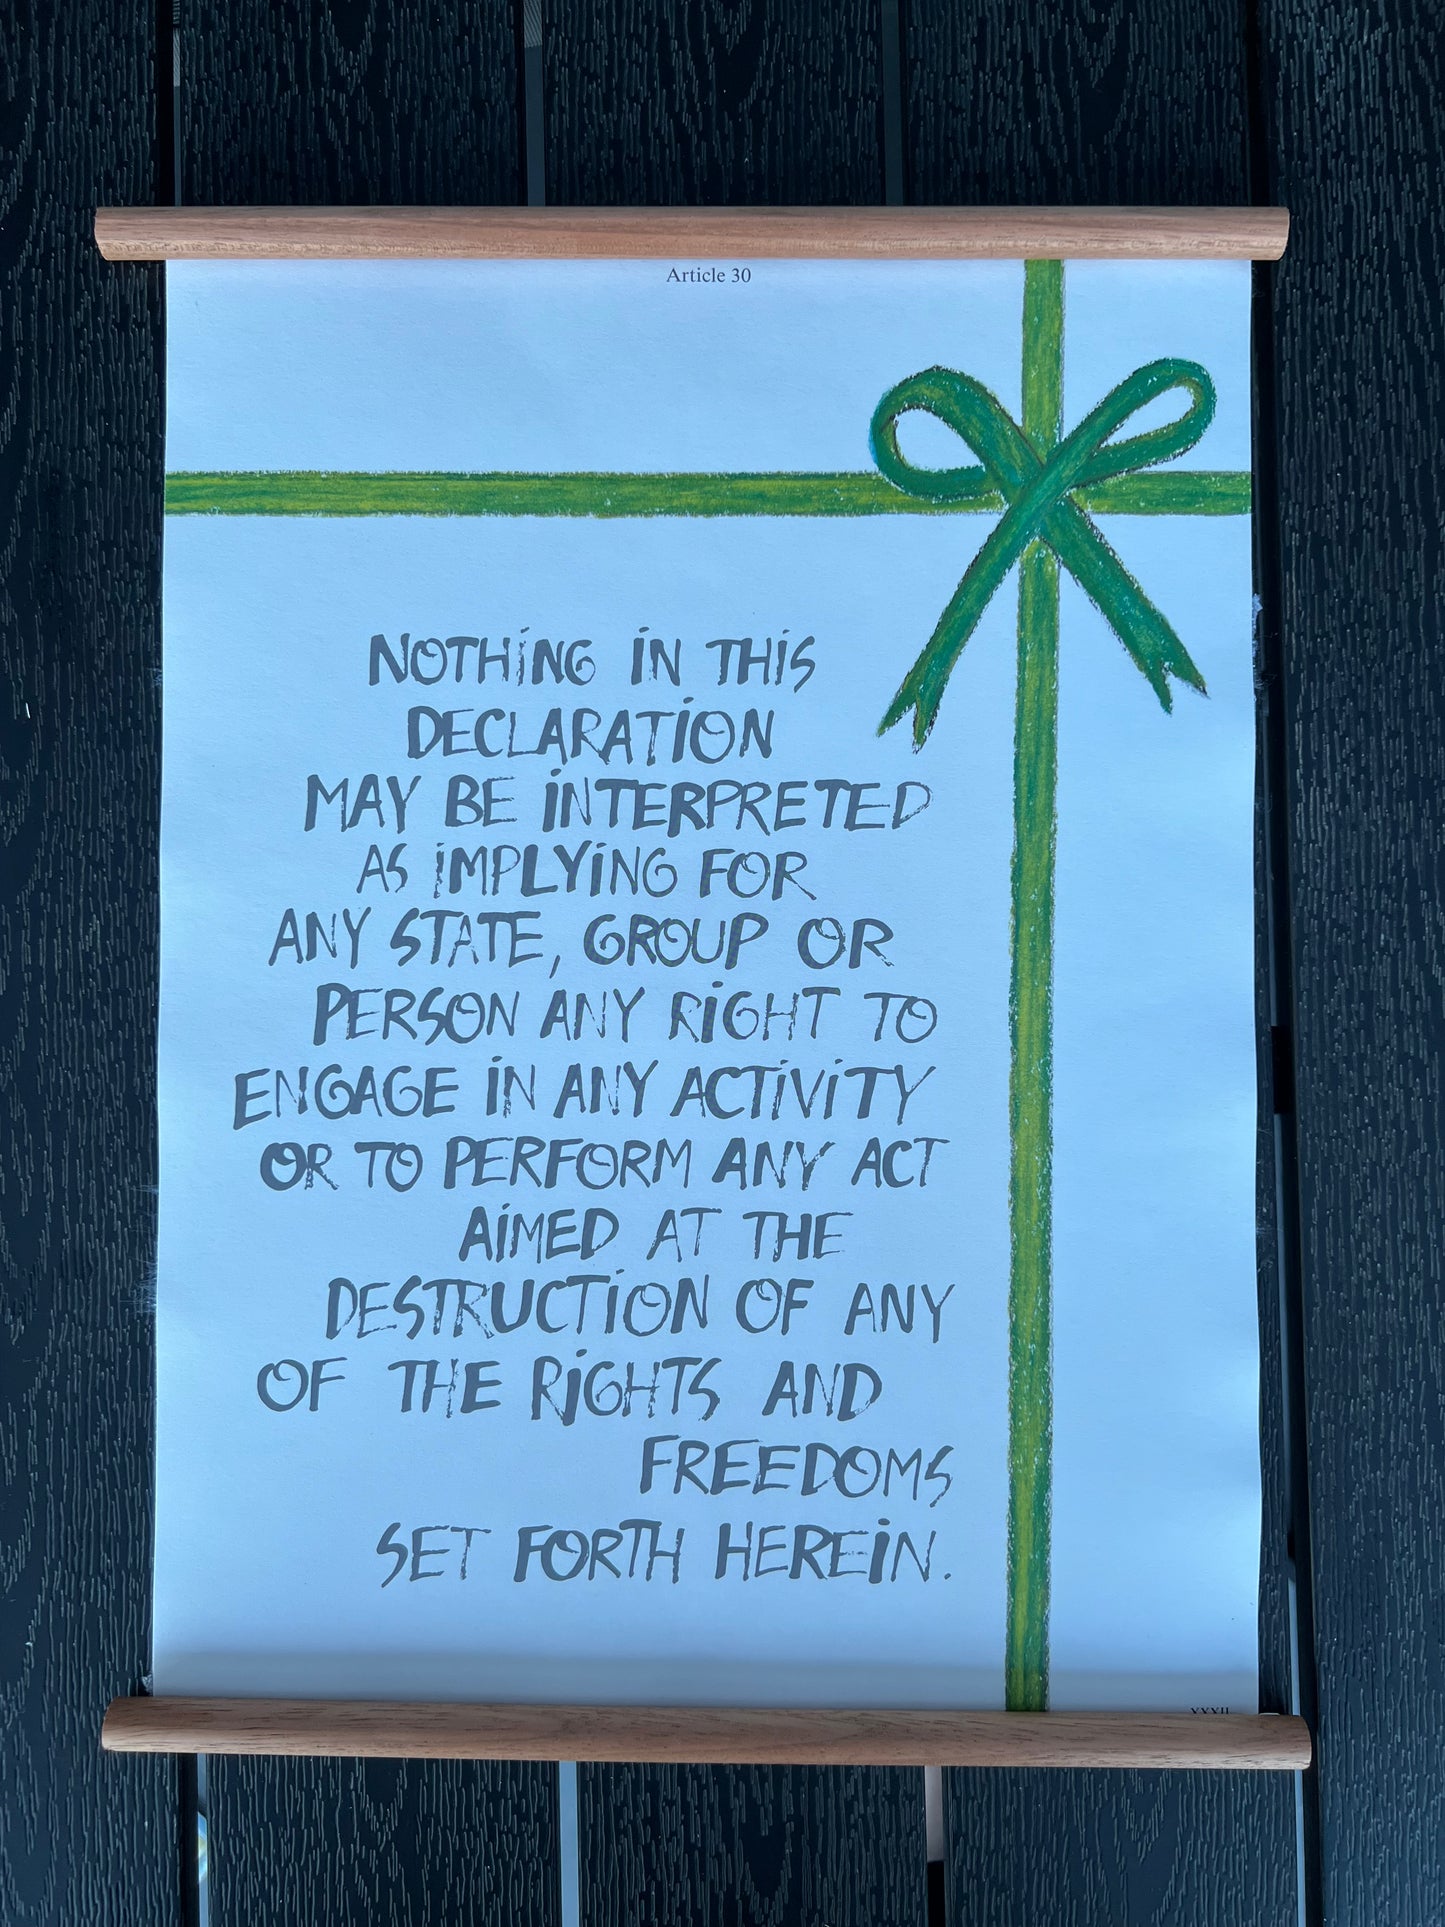 Article 30
NOTHING IN THIS
DECLARATION
MAY BE INTERPRETED
AS IMPLYING FOR
ANY STATE, GROUP OR
PERSON ANY RIGHT TO
ENGAGE IN ANY ACTIVITY
OR TO PERFORM ANY ACT
AIMED AT THE
DESTRUCTION OF ANY
OF THE RIGHTS AND
FREEDOMS
SET FORTH HEREIN.
XXXII